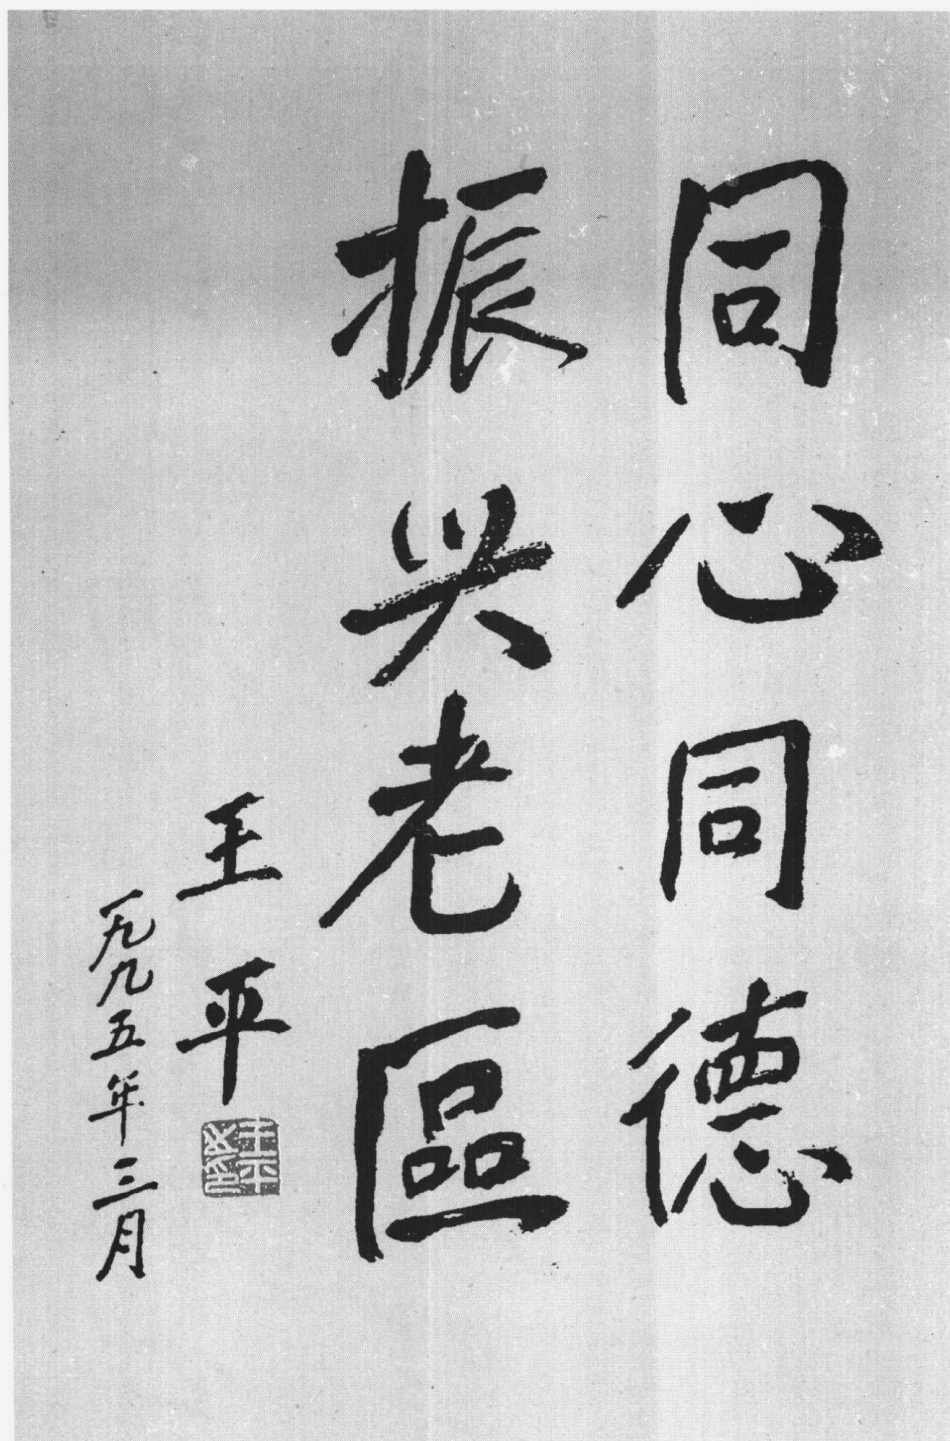 同心同德
振兴老區
王平
一九九五年三月
王平之印